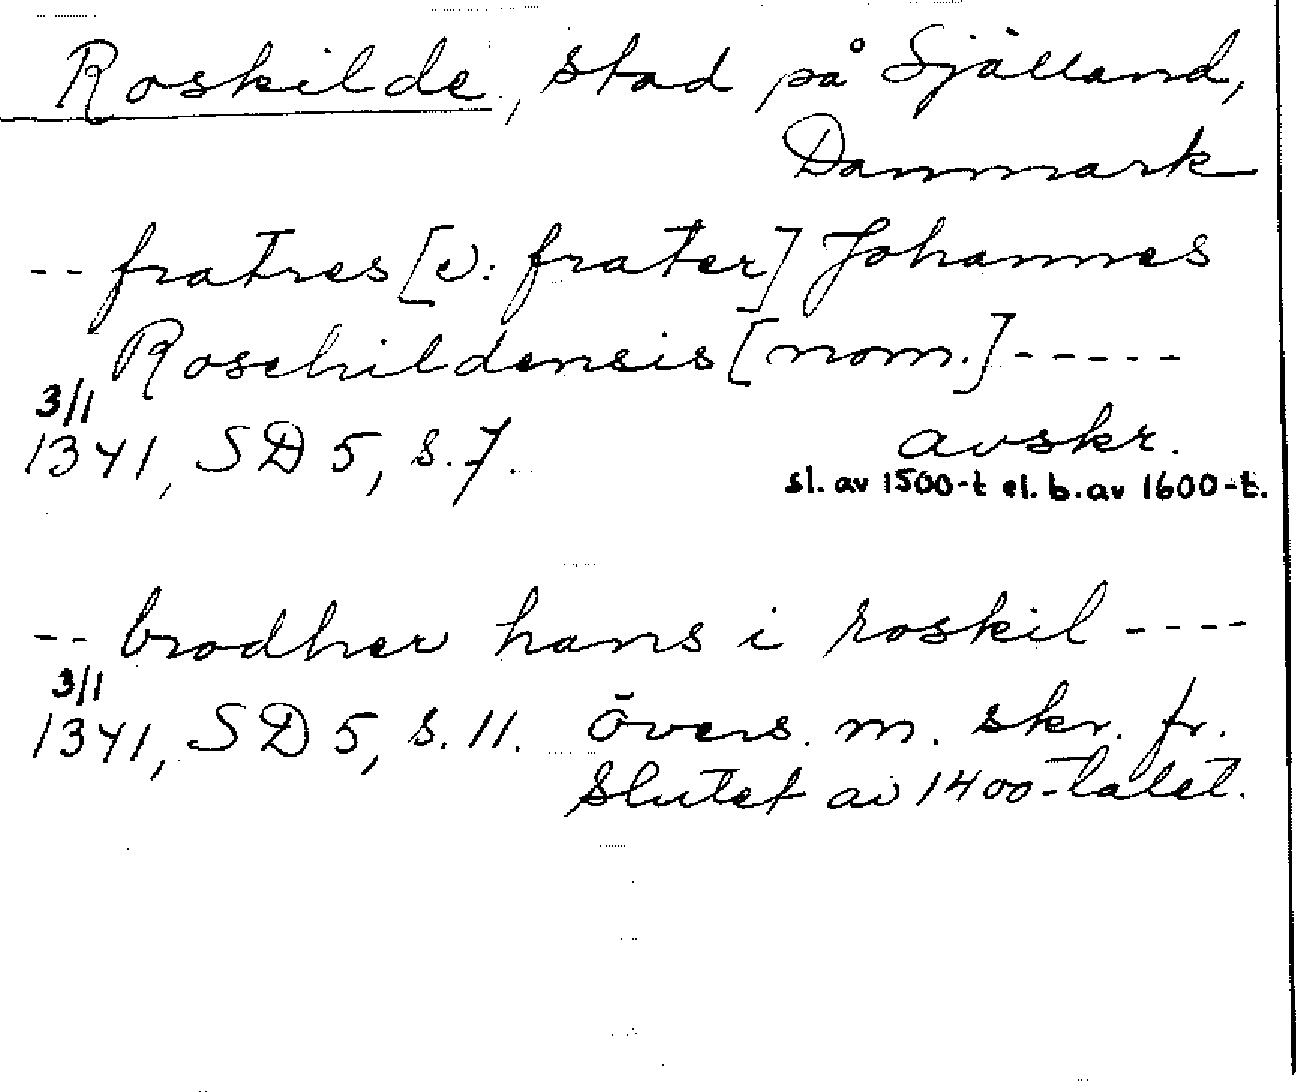 Roskilde, stad på Själland,
Danmark
-- fratres [ɔ: frater] Johannes
Roschildensis [nom.] -----
3/1
1341, SD 5, s. 7. avskr.
sl. av 1500-t el. b. av 1600-t.
-- brodher hans i roskil ----
3/1
1341, SD 5, s. 11. övers. m. skr. fr.
slutet av 1400-talet.